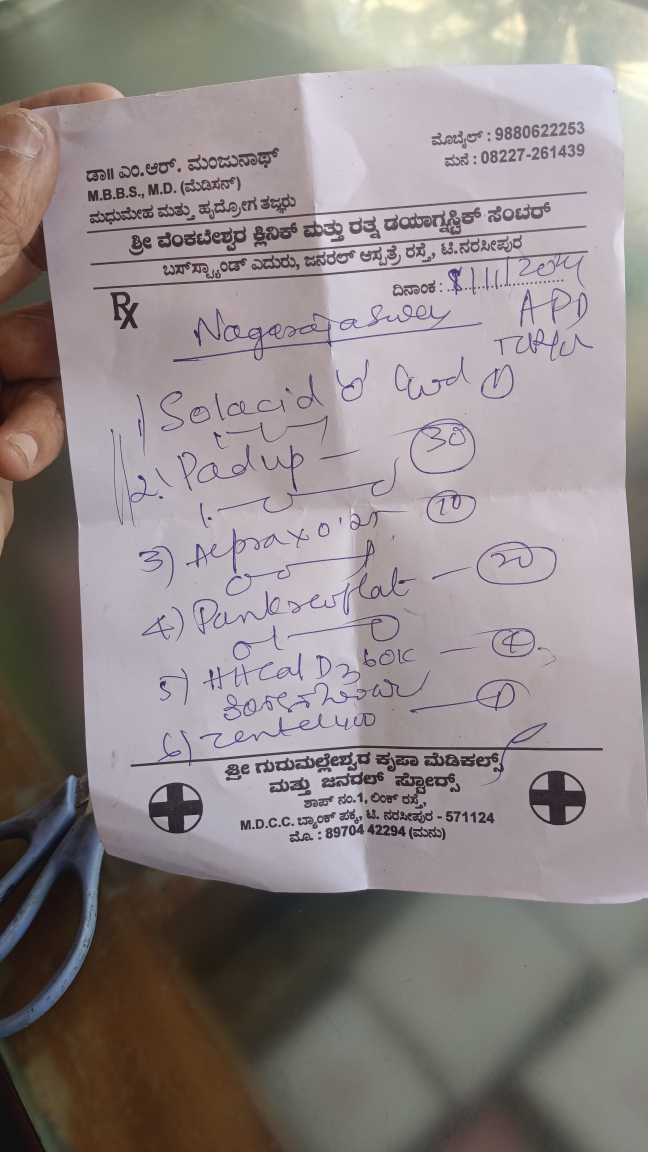 ಡಾ॥ ಎಂ.ಆರ್. ಮಂಜುನಾಥ್
M.B.B.S., M.D. (ಮೆಡಿಸನ್)
ಮಧುಮೇಹ ಮತ್ತು ಹೃದ್ರೋಗ ತಜ್ಞರು
ಮೊಬೈಲ್ : 9880622253
ಮನೆ : 08227-261439
ಶ್ರೀ ವೆಂಕಟೇಶ್ವರ ಕ್ಲಿನಿಕ್ ಮತ್ತು ರತ್ನ ಡಯಾಗ್ನಸ್ಟಿಕ್ ಸೆಂಟರ್
ಬಸ್‌ಸ್ಟ್ಯಾಂಡ್ ಎದುರು, ಜನರಲ್ ಆಸ್ಪತ್ರೆ ರಸ್ತೆ, ಟಿ.ನರಸೀಪುರ
Rx
ದಿನಾಂಕ : 8/11/2024
APD
1) Solacid 1
2. Padup - 30
3) Alprax 0.25 - 10
4) - 20
5) HHCal D3 60K - 4
6) Zentel 400 - 1
ಶ್ರೀ ಗುರುಮಲ್ಲೇಶ್ವರ ಕೃಪಾ ಮೆಡಿಕಲ್ಸ್
ಮತ್ತು ಜನರಲ್ ಸ್ಟೋರ್ಸ್
ಶಾಪ್ ನಂ.1, ಲಿಂಕ್ ರಸ್ತೆ,
M.D.C.C. ಬ್ಯಾಂಕ್ ಪಕ್ಕ, ಟಿ. ನರಸೀಪುರ - 571124
ಮೊ. : 89704 42294 (ಮನು)